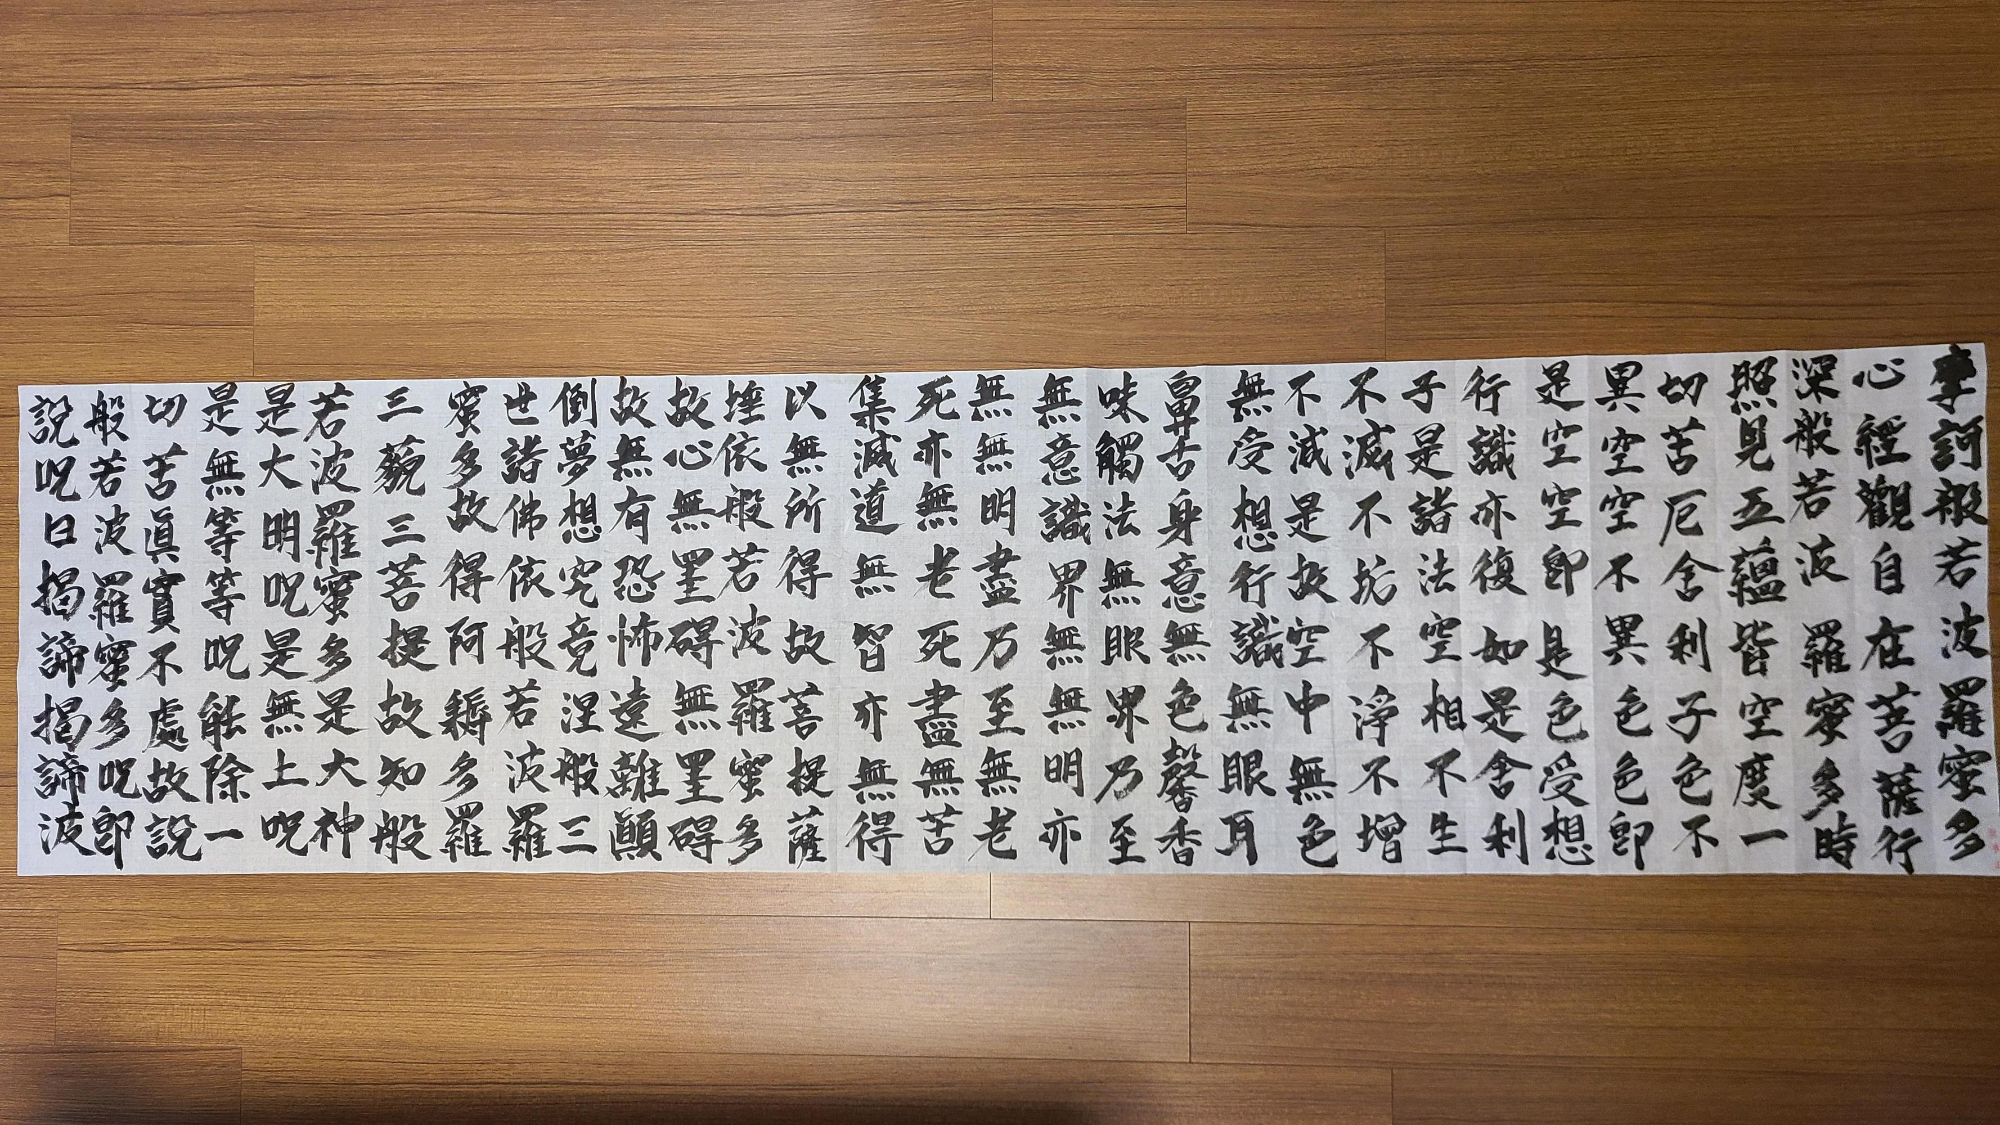 摩訶般若波羅蜜多
心經觀自在菩薩行
深般若波羅蜜多時
照見五蘊皆空度一
切苦厄舍利子色不
異空空不異色色即
是空空即是色受想
行識亦復如是舍利
子是諸法空相不生
不滅不垢不淨不增
不減是故空中無色
無受想行識無眼耳
鼻舌身意無色馨香
味觸法無眼界乃至
無意識界無無明亦
無無明盡乃至無老
死亦無老死盡無苦
集滅道無智亦無得
以無所得故菩提薩
埵依般若波羅蜜多
故心無罣碍無罣碍
故無有恐怖遠離顚
倒夢想究竟涅般三
世諸佛依般若波羅
蜜多故得阿耨多羅
三藐三菩提故知般
若波羅蜜多是大神
是大明呪是無上呪
是無等等呪能除一
切苦眞實不處故說
般若波羅蜜多呪即
說呪曰揭諦揭諦波